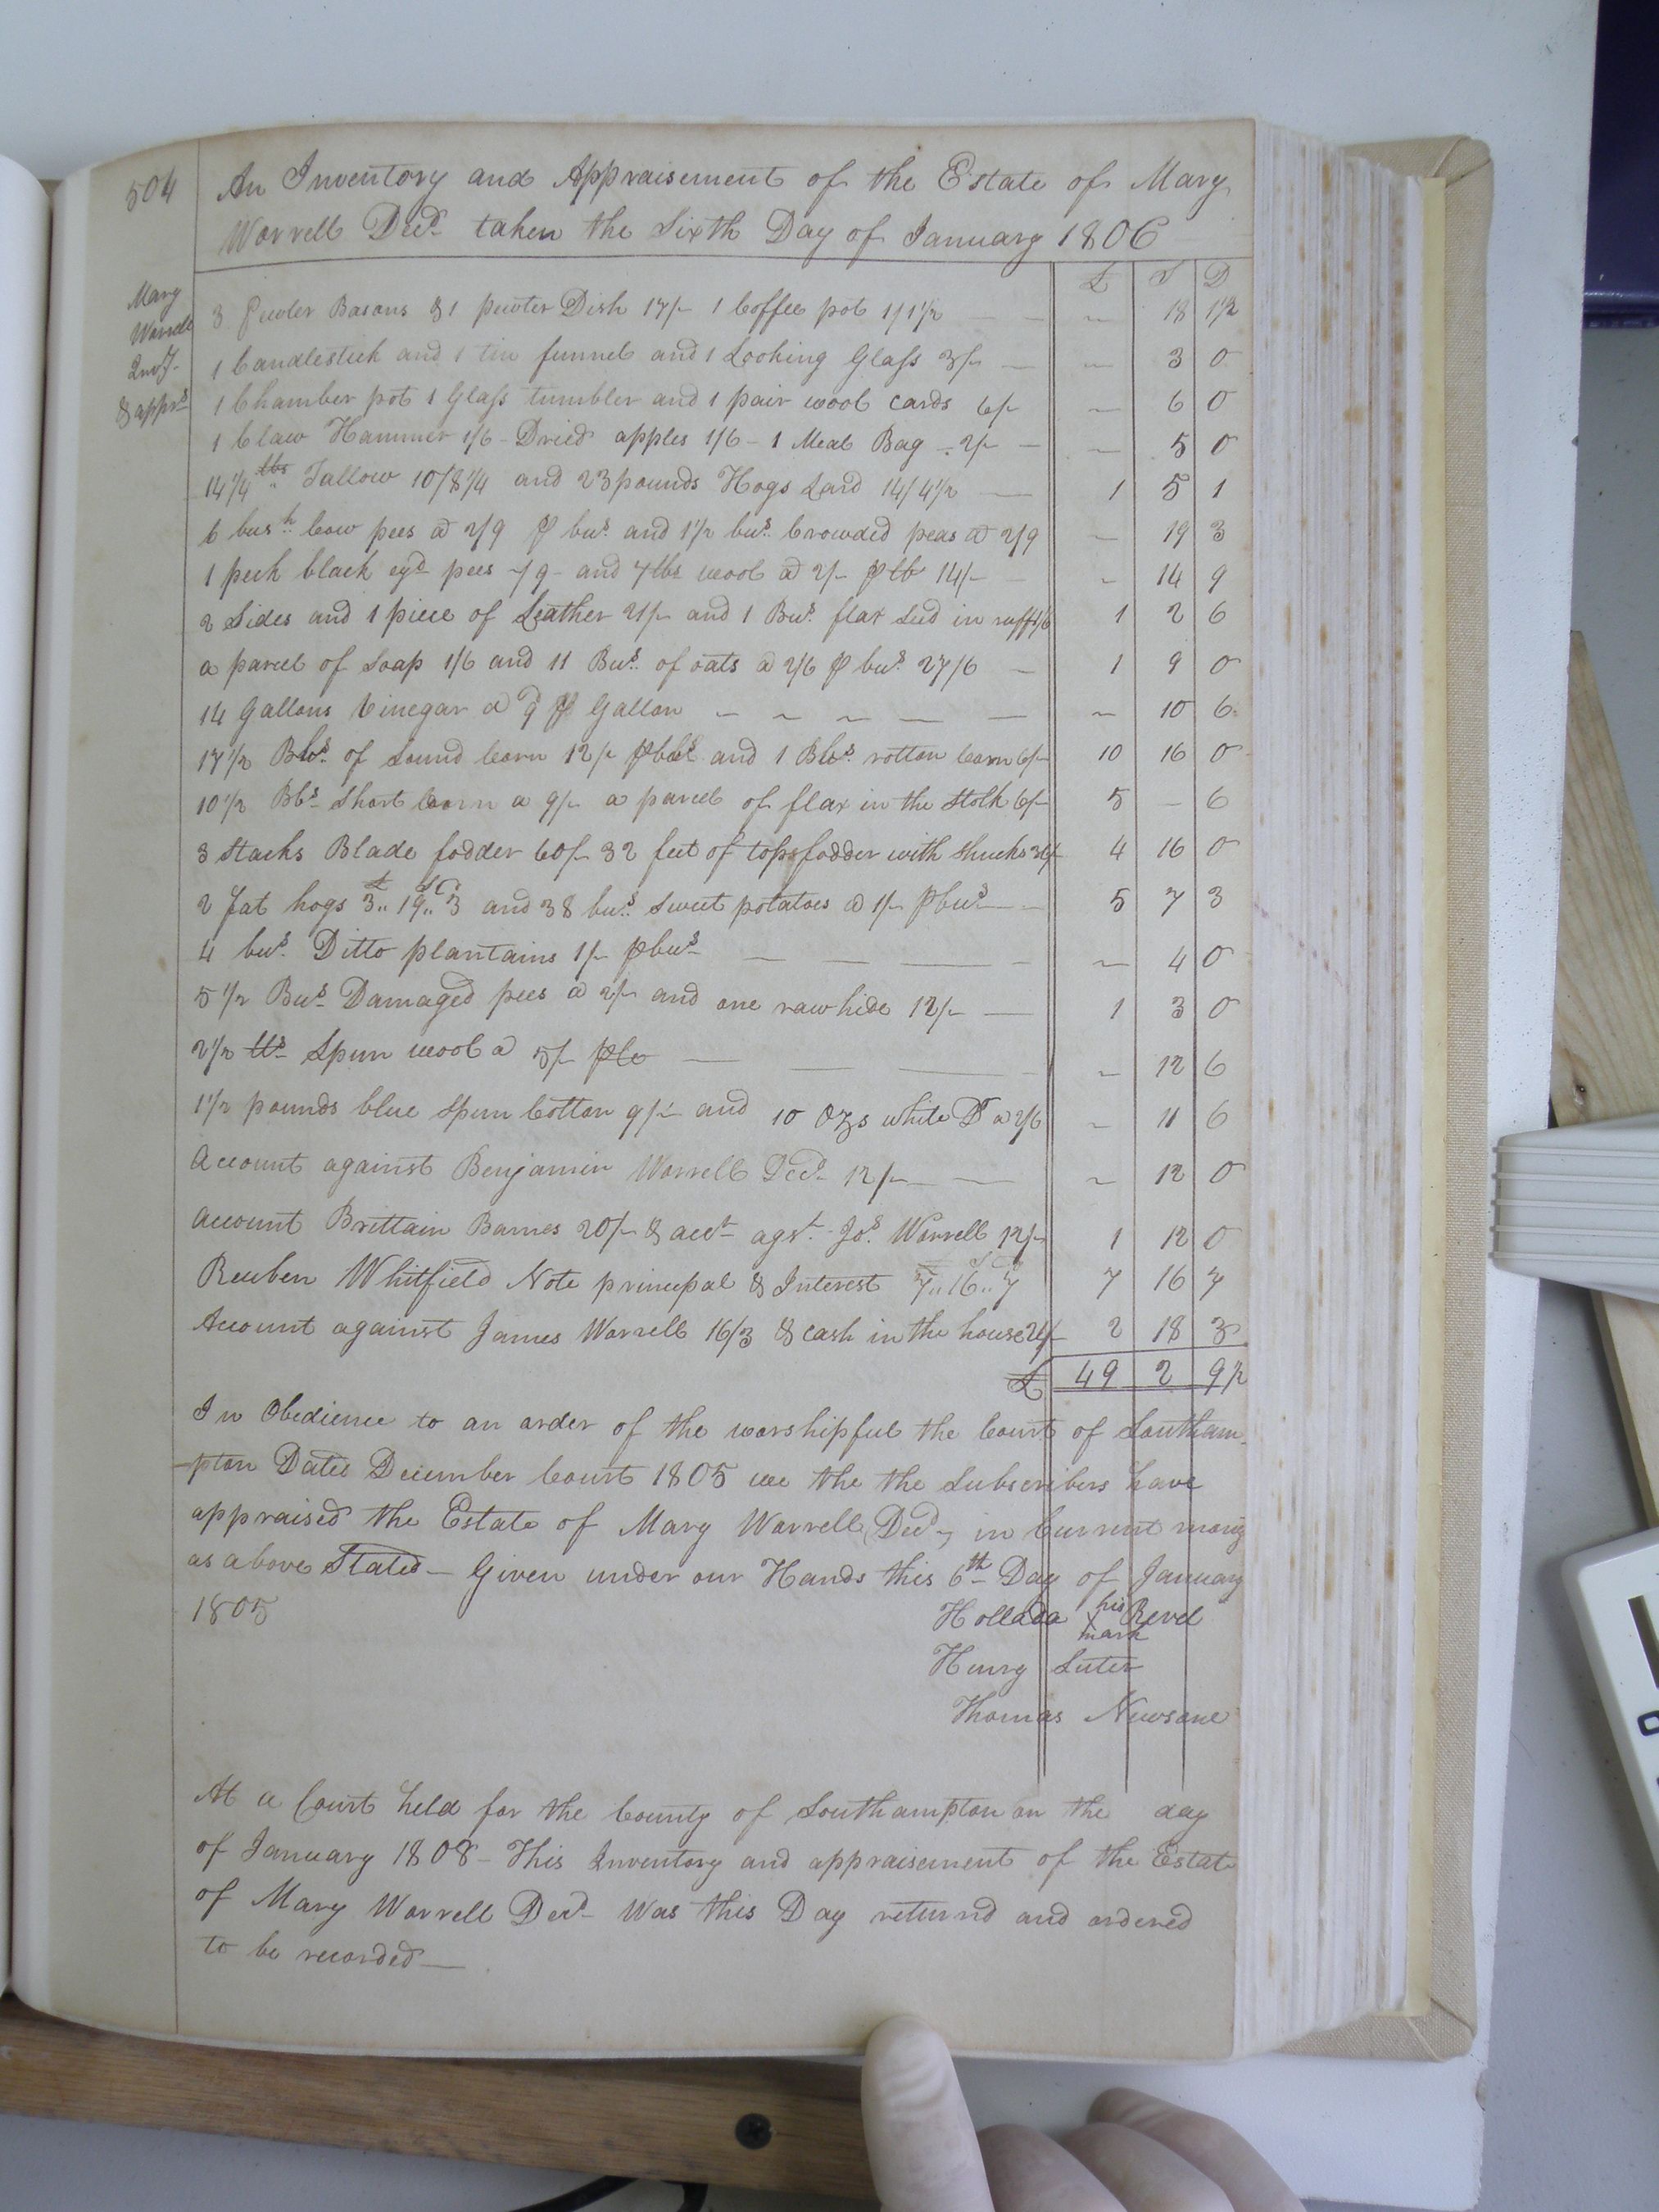 504
An Inventory and Appraisement of the Estate of Mary
Worrell Decd. taken the Sixth Day of January 1806
Mary
Worrell
Invy.
& apprt
£ S D
3 Pewter Basons & 1 pewter Dish 17/- 1 Coffee pot 1/1½ — — ~ 18 1½
1 Candlestick and 1 tin funnel and 1 Looking Glass 3/- — ~ 3 0
1 Chamber pot 1 Glass tumbler and 1 pair wool cards 6/- ~ 6 0
1 Claw Hammer 1/6 - Dried apples 1/6 - 1 Meal Bag - 2/- — ~ 5 0
14¼ lbs Tallow 10/8¼ and 23 pounds Hogs Lard 14/4½ — 1 5 1
6 bush Cow pees @ 2/9 ⅌ bus. and 1½ bus. Crowded peas @ 2/9 ~ 19 3
1 peck black eyd pees -/9 - and 7 lbs wool @ 2/- ⅌ lb 14/- ~ 14 9
2 Sides and 1 piece of Leather 21/- and 1 Bus. flax seed in ruff 1/6 1 2 6
a parcel of Soap 1/6 and 11 Bus. of oats @ 2/6 ⅌ bus. 27/6 — 1 9 0
14 Gallons Vinegar @ 9d ⅌ Gallon — ~ ~ — — ~ 10 6
17½ Bbs. of Sound Corn 12/- ⅌ bbl and 1 Bbs. rotton Corn 6/- 10 16 0
10½ Bbs Short Corn a 9/- a parcel of flax in the Stolk 6/- 5 — 6
3 Stacks Blade fodder 60/- 32 feet of tops fodder with Shucks 36/- 4 16 0
2 fat hogs £3..19S..3D and 38 bus. Sweet potatoes @ 1/- ⅌ bus — 5 7 3
4 bus. Ditto plantains 1/- ⅌ bus — — — — ~ 4 0
5½ Bus Damaged pees @ 2/- and one raw hide 12/- — 1 3 0
2½ lbs Spun wool a 5/- ⅌ lb — — — ~ 12 6
1½ pounds blue Spun Cotton 9/- and 10 Ozs white Do a 2/6 ~ 11 6
Account against Benjamin Worrell Decd 12/- — — ~ 12 0
Account Brittain Barnes 20/- & acct. agst. Jos. Worrell 12/- 1 12 0
Reuben Whitfield Note principal & Interest £7..16S..7D 7 16 7
Account against James Worrell 16/3 & cash in the house 2 18 3
£ 49 2 9½
In Obedience to an order of the worshipful the Court of Southam-
-pton Dated December Court 1805 we the the Subscribers have
appraised the Estate of Mary Worrell Decd, in Current money
as above Stated — Given under our Hands this 6th Day of January
1805
Hollada his X mark Revel
Henry Luter
Thomas Newsone
At a Court held for the County of Southampton on the day
of January 1808 - This Inventory and appraisement of the Estate
of Mary Worrell Decd - Was this Day returnd and ordered
to be recorded —